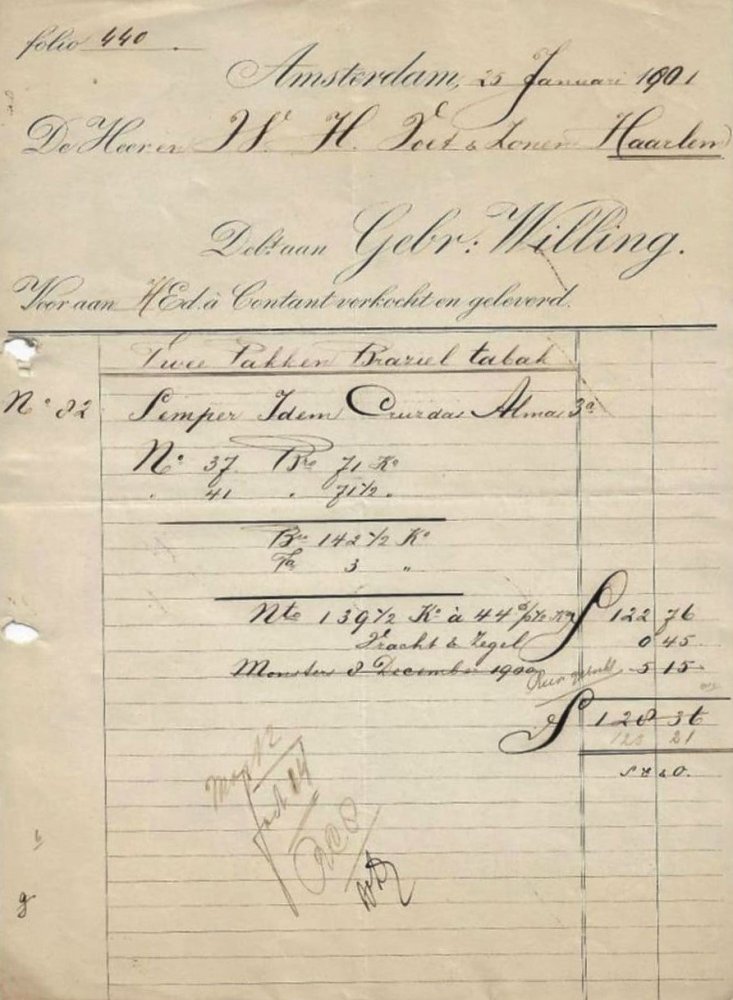 folio 440.
Amsterdam, 25 Januari 1901
De Heeren W. H. Voet & Zonen Haarlem
Debt. aan Gebr: Willing.
Voor aan HEd. à Contant verkocht en geleverd.
Twee Pakken Braziel tabak
No 82 Semper Idem Cruz das Almas 3a
No 37 Bto 71 Ko
" 41 " 71 1/2 "
Bto 142 1/2 Ko
Ta 3 "
Nto 139 1/2 Ko à 44 ct p 1/2 Kg f 122 76
Vracht & Zegel 0 45
Monster 8 December 1900 5 15
f 128 36
123 21
S. E. & O.